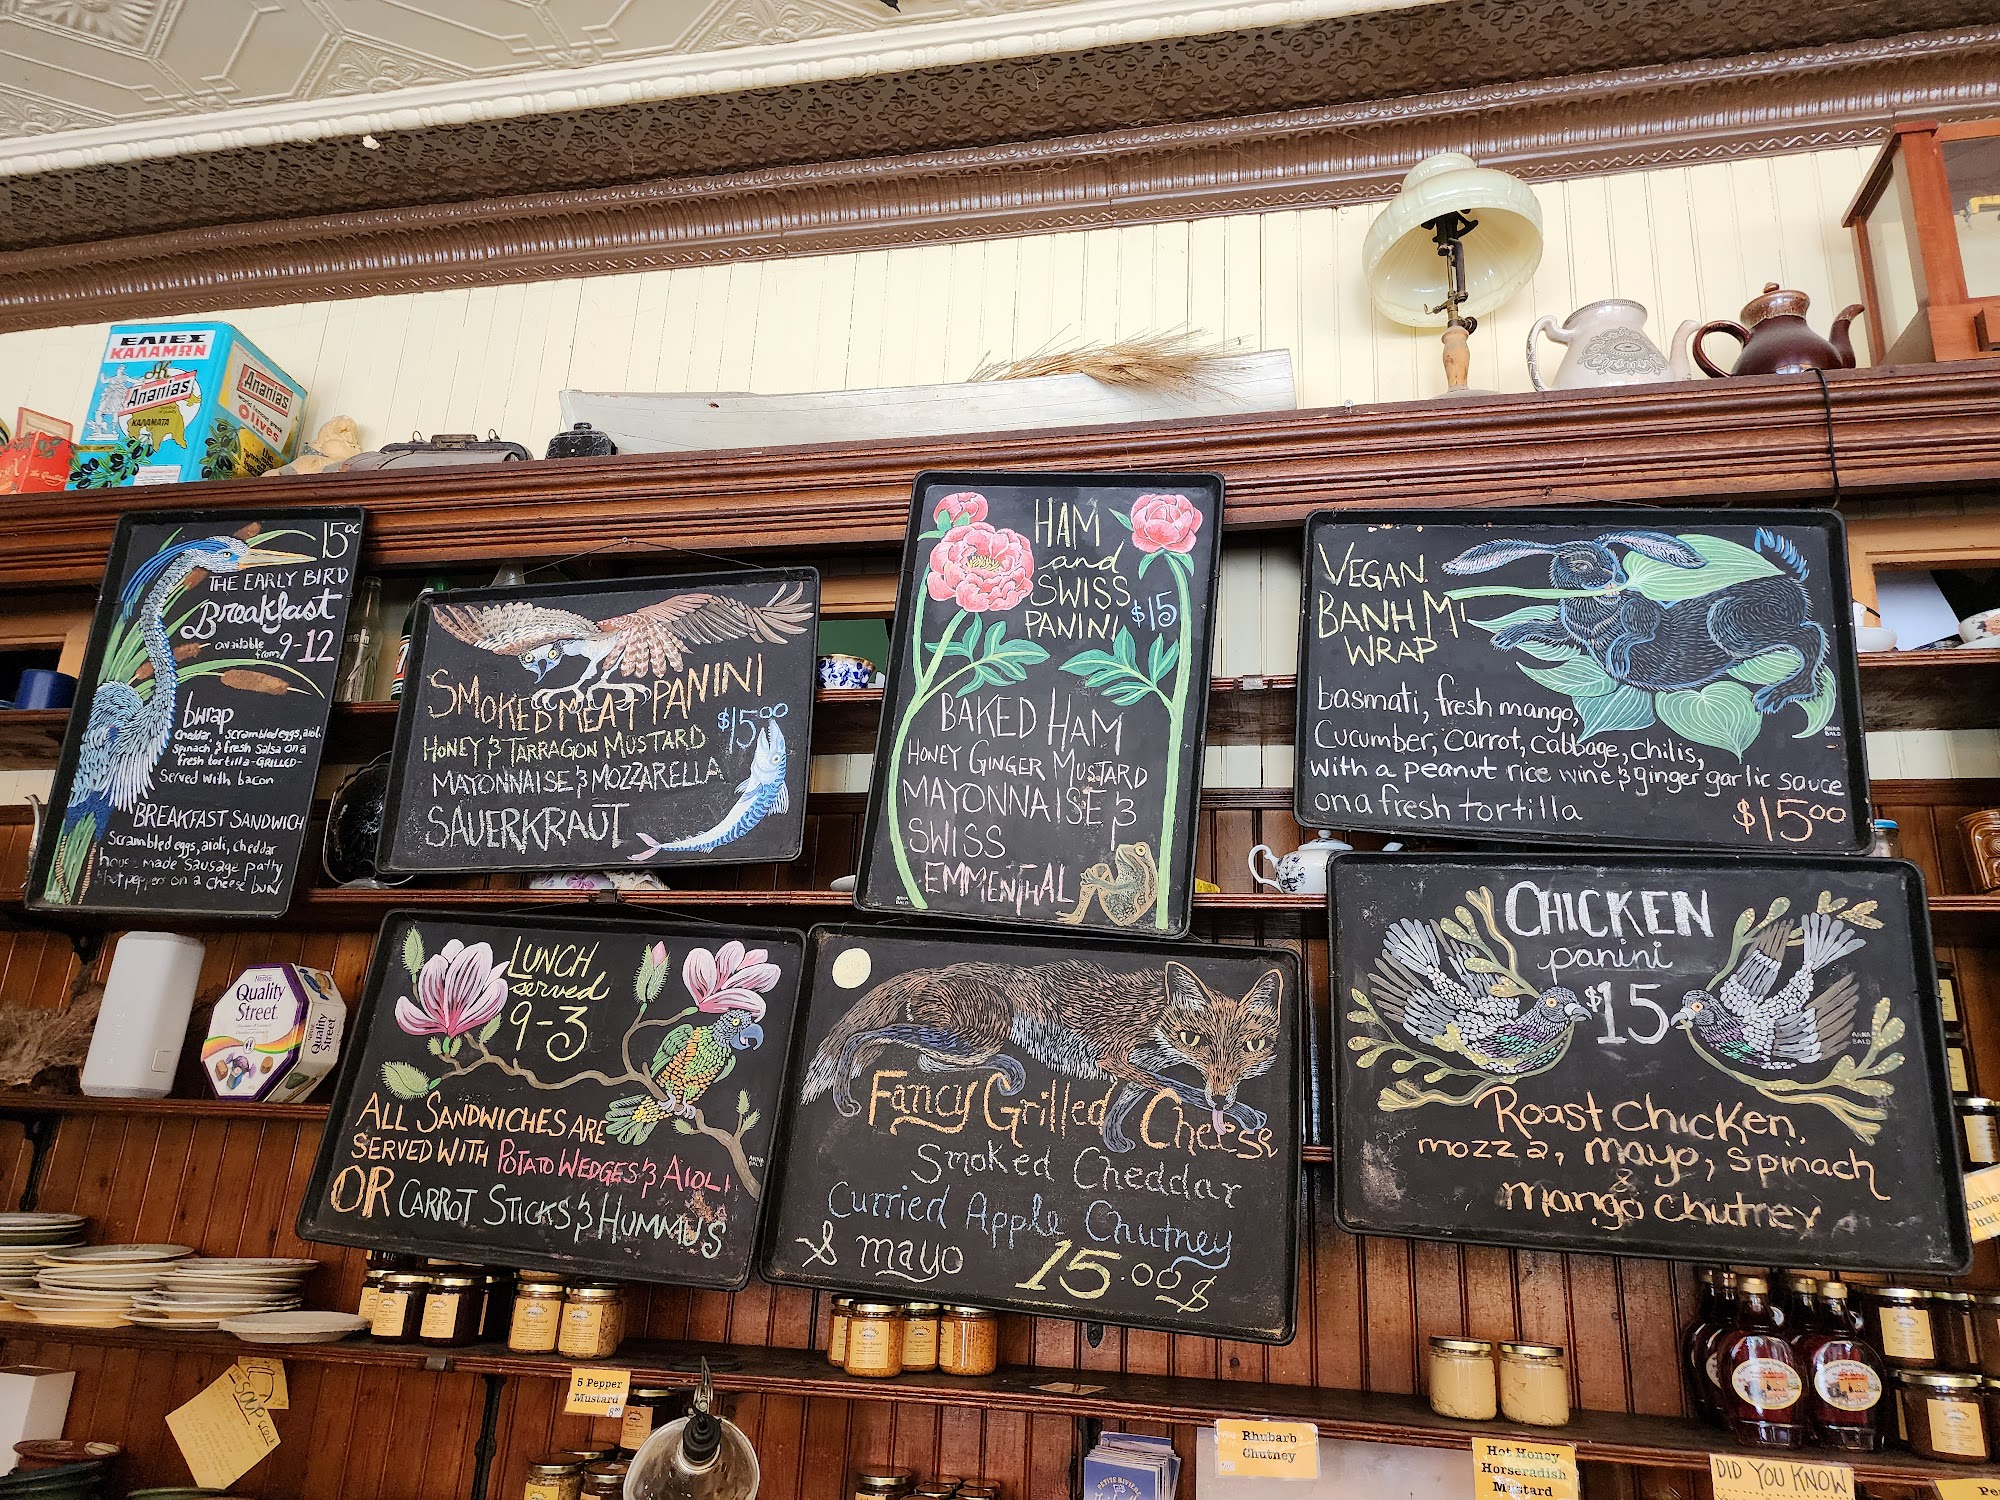 ΕΛΙΕΣ
ΚΑΛΑΜΩΝ
AK
Ananias
ΚΑΛΑΜΑΤΑ
Ananias
Olives
15 00
THE EARLY BIRD
Breakfast
available
from 9-12
bwrap
cheddar, scrambled eggs, aioli
spinach & fresh salsa on a
fresh tortilla - GRILLED -
served with bacon
BREAKFAST SANDWICH
scrambled eggs, aioli, cheddar
made sausage patty
hot peppers on a cheese bun
SMOKED MEAT PANINI
$15.00
HONEY & TARRAGON MUSTARD
MAYONNAISE & MOZZARELLA
SAUERKRAUT
HAM
and
SWISS
PANINI
$15
BAKED HAM
HONEY GINGER MUSTARD
MAYONNAISE &
SWISS
EMMENTHAL
ANNA
BALD
VEGAN
BANH MI
WRAP
basmati, fresh mango,
Cucumber, carrot, cabbage, chilis,
with a peanut rice wine & ginger garlic sauce
on a fresh tortilla
$15.00
ANNA
BALD
LUNCH
served
9-3
ALL SANDWICHES ARE
SERVED WITH POTATO WEDGES & AIOLI
OR CARROT STICKS & HUMMUS
ANNA
BALD
Fancy Grilled Cheese
Smoked Cheddar
Curried Apple Chutney
& mayo
15.00 $
CHICKEN
panini
$15
ANNA
BALD
Roast chicken,
mozza, mayo, spinach
&
mango chutney
Nestlé
Quality
Street
Quality
Street
5 Pepper
Mustard
8.00
Rhubarb
Chutney
Hot Honey
Horseradish
Mustard
DID YOU KNOW
PETITE RIVIERE
SOUP